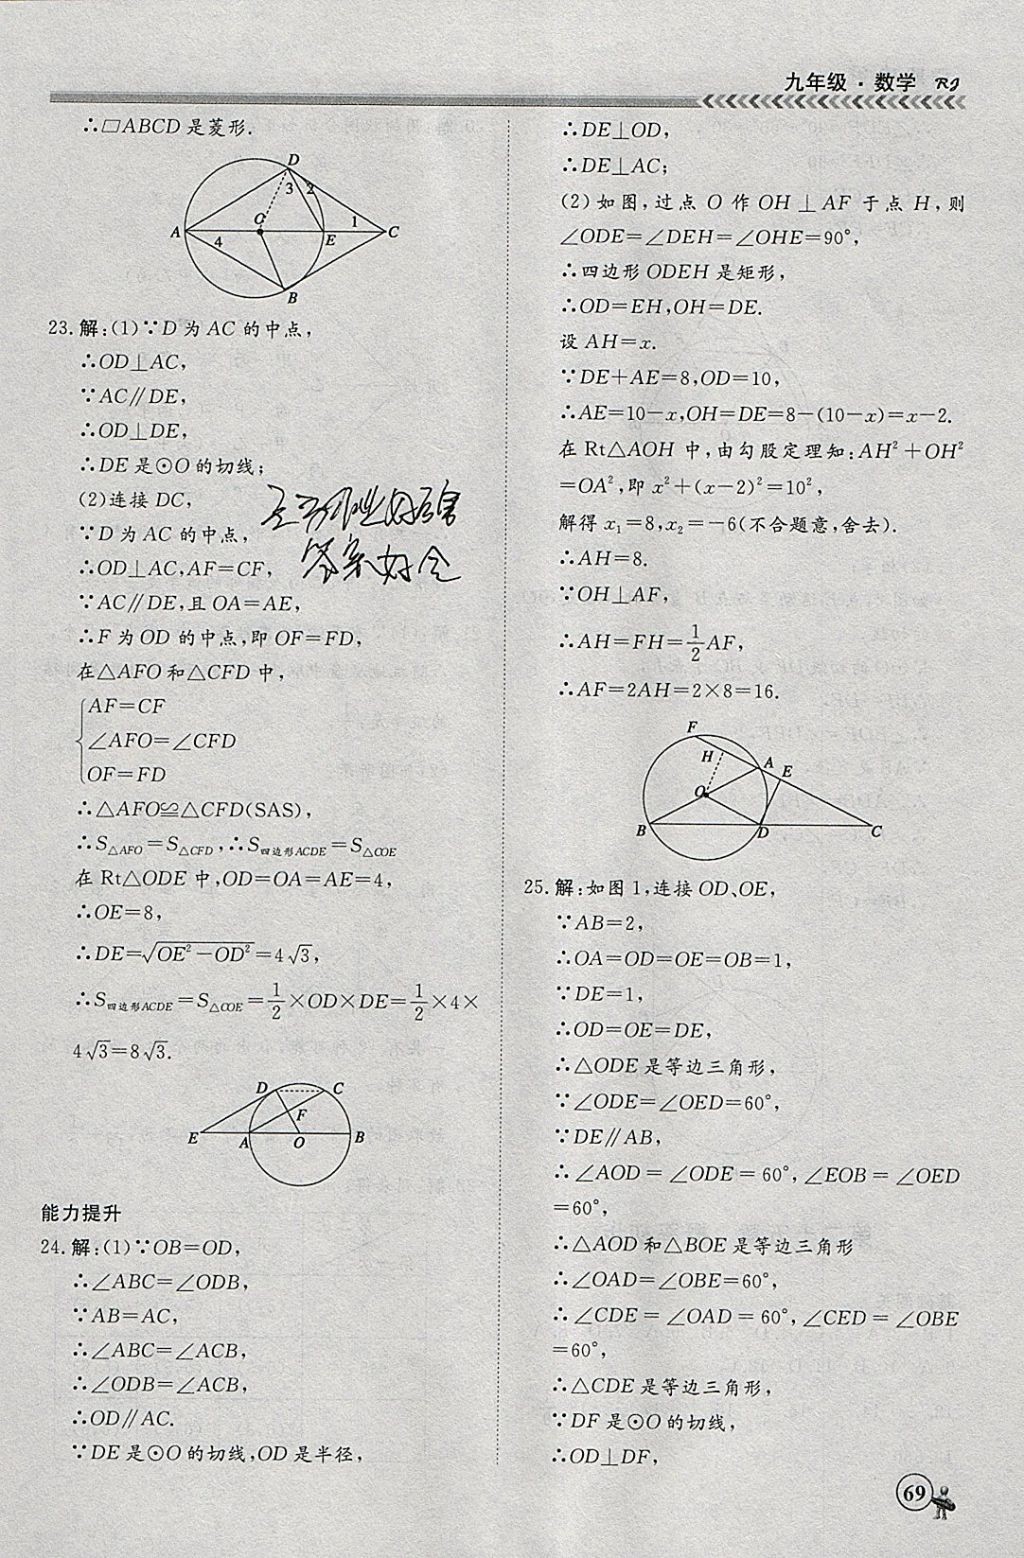 九年级·数学 RJ
∴□ABCD是菱形.
D
3 2
A O E 1 C
4
B
23.解:(1)∵D为AC的中点,
∴OD⊥AC,
∵AC∥DE,
∴OD⊥DE,
∴DE是⊙O的切线;
(2)连接DC,
∵D为AC的中点,
∴OD⊥AC,AF=CF,
∵AC∥DE,且OA=AE,
∴F为OD的中点,即OF=FD,
在△AFO和△CFD中,
AF=CF
∠AFO=∠CFD
OF=FD
∴△AFO≌△CFD(SAS),
∴S△AFO=S△CFD,∴S四边形ACDE=S△COE
在Rt△ODE中,OD=OA=AE=4,
∴OE=8,
∴DE=√(OE²-OD²)=4√3,
∴S四边形ACDE=S△COE=1/2×OD×DE=1/2×4×
4√3=8√3.
D C
F
E A O B
能力提升
24.解:(1)∵OB=OD,
∴∠ABC=∠ODB,
∵AB=AC,
∴∠ABC=∠ACB,
∴∠ODB=∠ACB,
∴OD∥AC.
∵DE是⊙O的切线,OD是半径,
∴DE⊥OD,
∴DE⊥AC;
(2)如图,过点O作OH⊥AF于点H,则
∠ODE=∠DEH=∠OHE=90°,
∴四边形ODEH是矩形,
∴OD=EH,OH=DE.
设AH=x.
∵DE+AE=8,OD=10,
∴AE=10-x,OH=DE=8-(10-x)=x-2.
在Rt△AOH中,由勾股定理知:AH²+OH²
=OA²,即x²+(x-2)²=10²,
解得x₁=8,x₂=-6(不合题意,舍去).
∴AH=8.
∵OH⊥AF,
∴AH=FH=1/2AF,
∴AF=2AH=2×8=16.
F
H A E
O
B D C
25.解:如图1,连接OD、OE,
∵AB=2,
∴OA=OD=OE=OB=1,
∵DE=1,
∴OD=OE=DE,
∴△ODE是等边三角形,
∵∠ODE=∠OED=60°,
∵DE∥AB,
∴∠AOD=∠ODE=60°,∠EOB=∠OED
=60°,
∴△AOD和△BOE是等边三角形
∴∠OAD=∠OBE=60°,
∴∠CDE=∠OAD=60°,∠CED=∠OBE
=60°,
∴△CDE是等边三角形,
∵DF是⊙O的切线,
∴OD⊥DF,
69